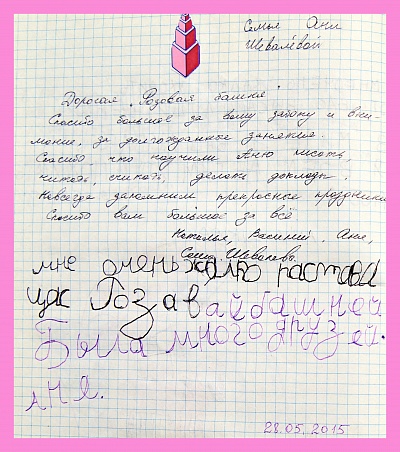 Семья Ани
Шевалёвой
Дорогая "Розовая башня"
Спасибо большое за вашу заботу и вни-
мание, за долгожданные занятия.
Спасибо, что научили Аню писать,
читать, считать делать доклады.
Навсегда запомним прекрасные праздники
Спасибо вам большое за всё
Наталья, Василий, Аня,
Саша Шевалёвы.
мне очень жалко растова
цас Розавайбашней
Была много друзей.
Аня.
28.05.2015